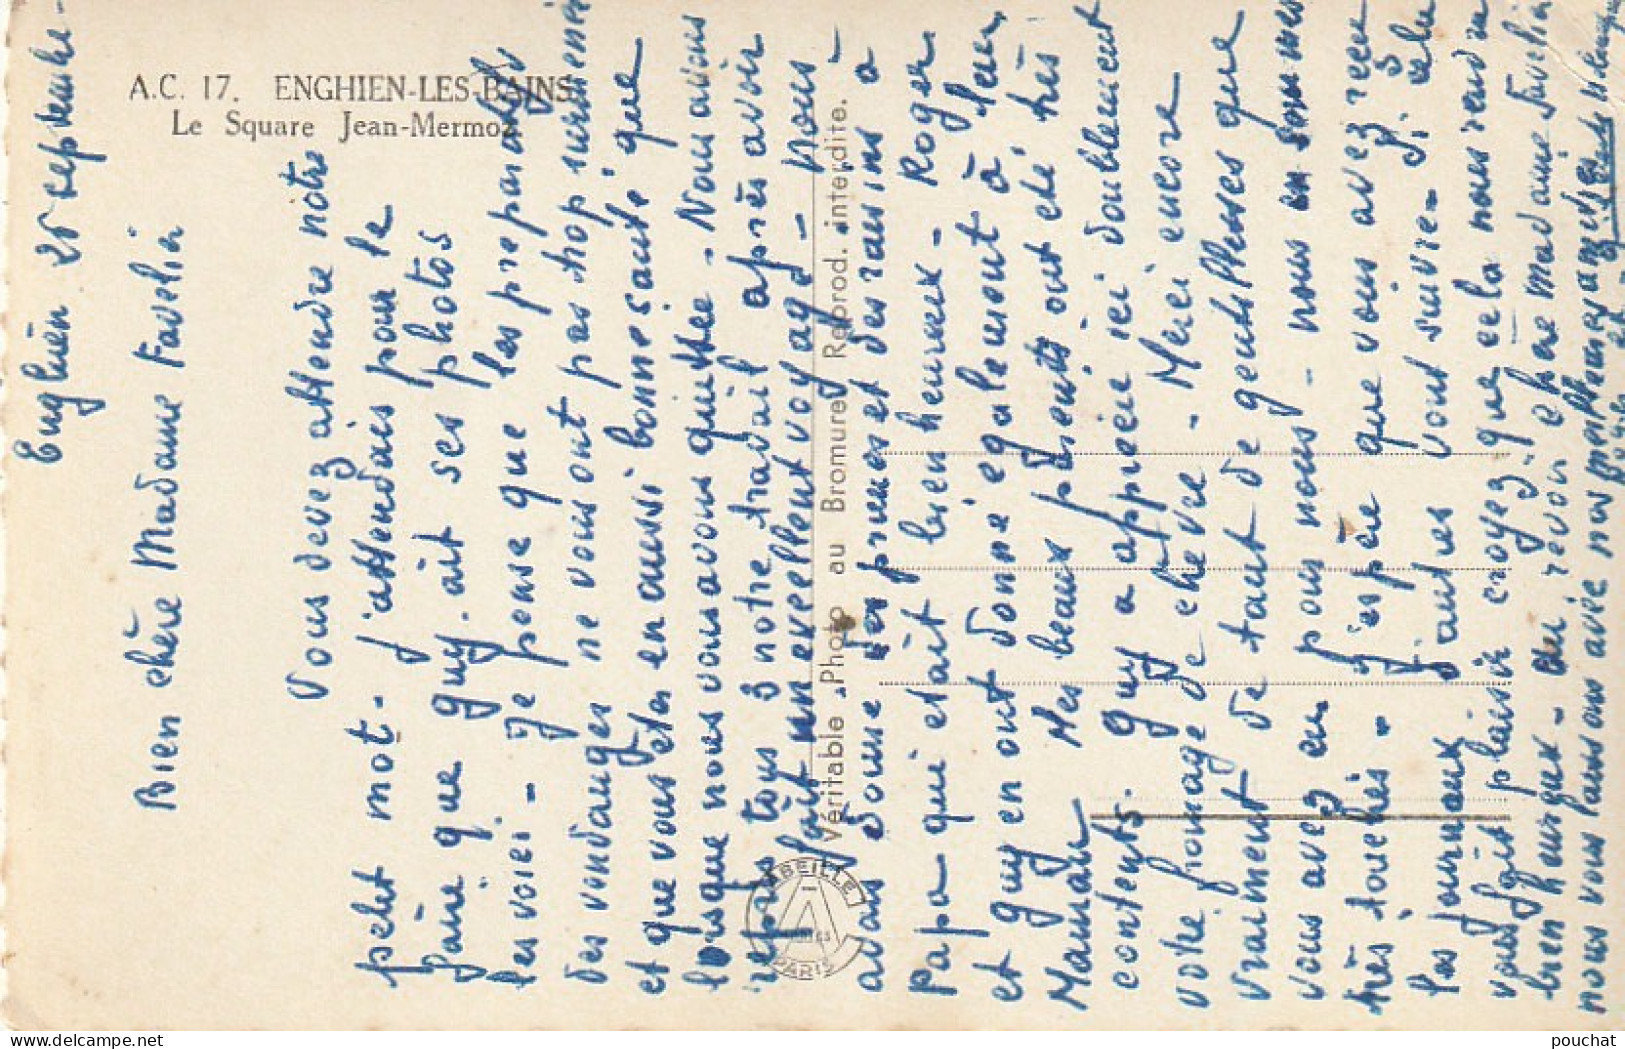 A.C. 17. ENGHIEN-LES-BAINS
Le Square Jean-Mermoz
Enghien 25 septembre -
Bien chère Madame Favelin
Vous devez attendre notre
petit mot - j'attendais pour le
faire que Guy ait ses photos
les voici - je pense que les preparatifs
des vendanges ne vous ont pas trop surmené
et que vous etes en aussi bonne santé que
lorsque nous vous avons quittée - Nous avons
repris tous 3 notre travail après avoir
fait un excellent voyage - nous
avons donné des prunes et des raisins à
Papa qui etait bien heureux - Roger
et Guy en ont donné egalement à leur
Maman Mes beaux parents ont été très
contents. Guy a apprécié ici doublement
votre fromage de chèvre - Merci encore
vraiment de tant de gentillesses que
vous avez eu pour nous - nous en sommes
très touchés - j'espère que vous avez recu
les journaux d'autres vont suivre - Si cela
vous fait plaisir croyez que cela nous rend
bien heureux - Au revoir chère Madame Favelin
nous vous laissons avec nos meilleures amitiés
Véritable "Photo au Bromure" Reprod. interdite.
ABEILLE
CARTES
PARIS